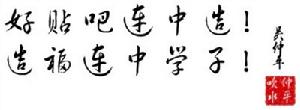 好贴吧连中造！
造福连中学子！
吴仲平
仲平
吹水